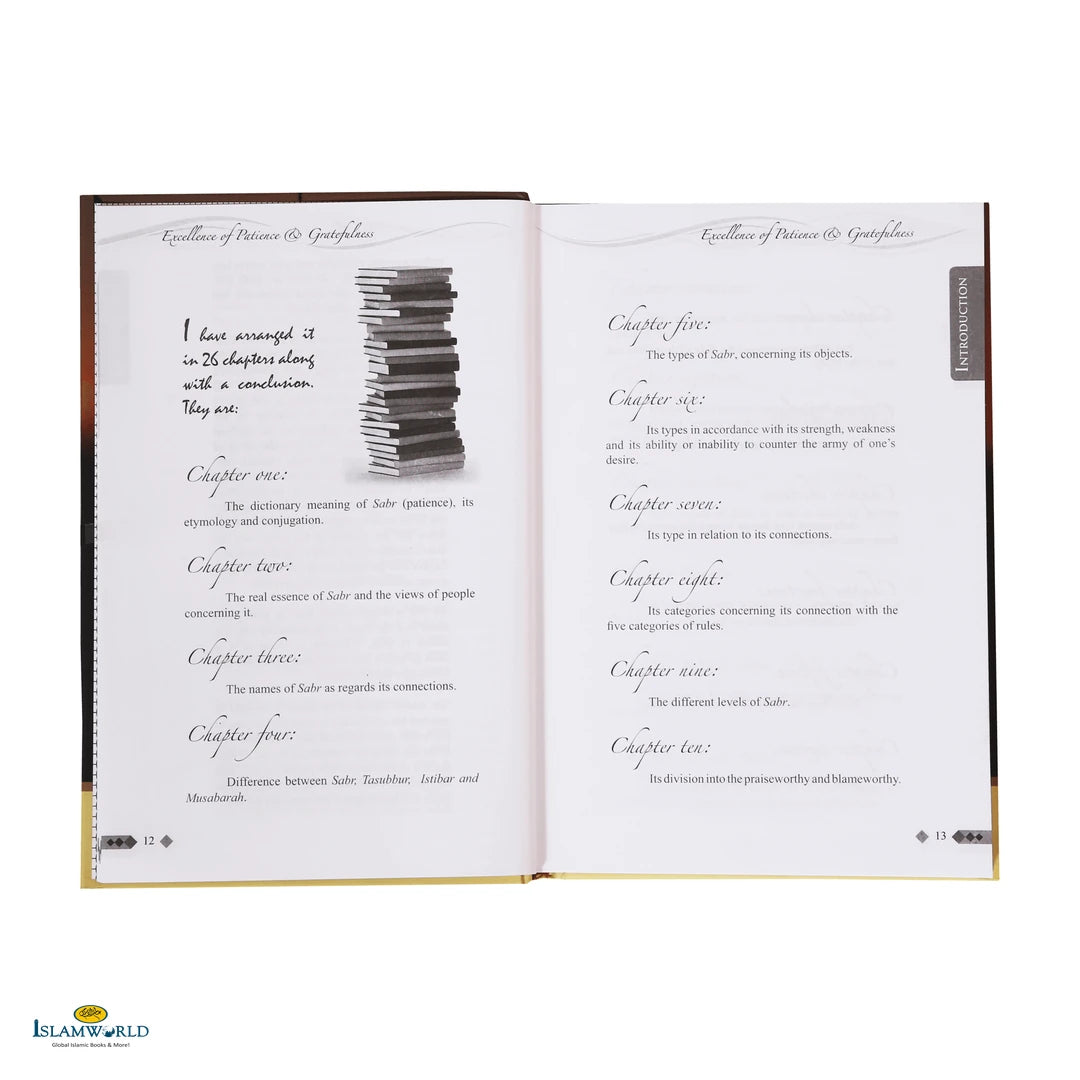 Excellence of Patience & Gratefulness
I have arranged it
in 26 chapters along
with a conclusion.
They are:
Chapter one:
The dictionary meaning of Sabr (patience), its
etymology and conjugation.
Chapter two:
The real essence of Sabr and the views of people
concerning it.
Chapter three:
The names of Sabr as regards its connections.
Chapter four:
Difference between Sabr, Tasubbur, Istibar and
Musabarah.
12
Excellence of Patience & Gratefulness
INTRODUCTION
Chapter five:
The types of Sabr, concerning its objects.
Chapter six:
Its types in accordance with its strength, weakness
and its ability or inability to counter the army of one's
desire.
Chapter seven:
Its type in relation to its connections.
Chapter eight:
Its categories concerning its connection with the
five categories of rules.
Chapter nine:
The different levels of Sabr.
Chapter ten:
Its division into the praiseworthy and blameworthy.
13
ISLAMWORLD
Global Islamic Books & More!